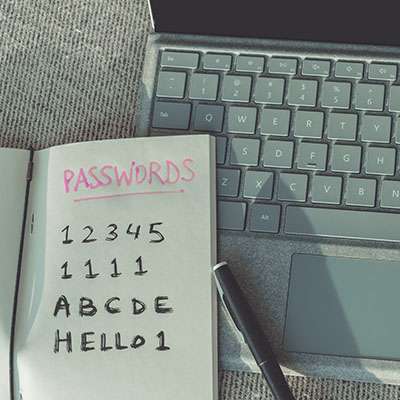 PASSWORDS
12345
1111
ABCDE
HELLO1